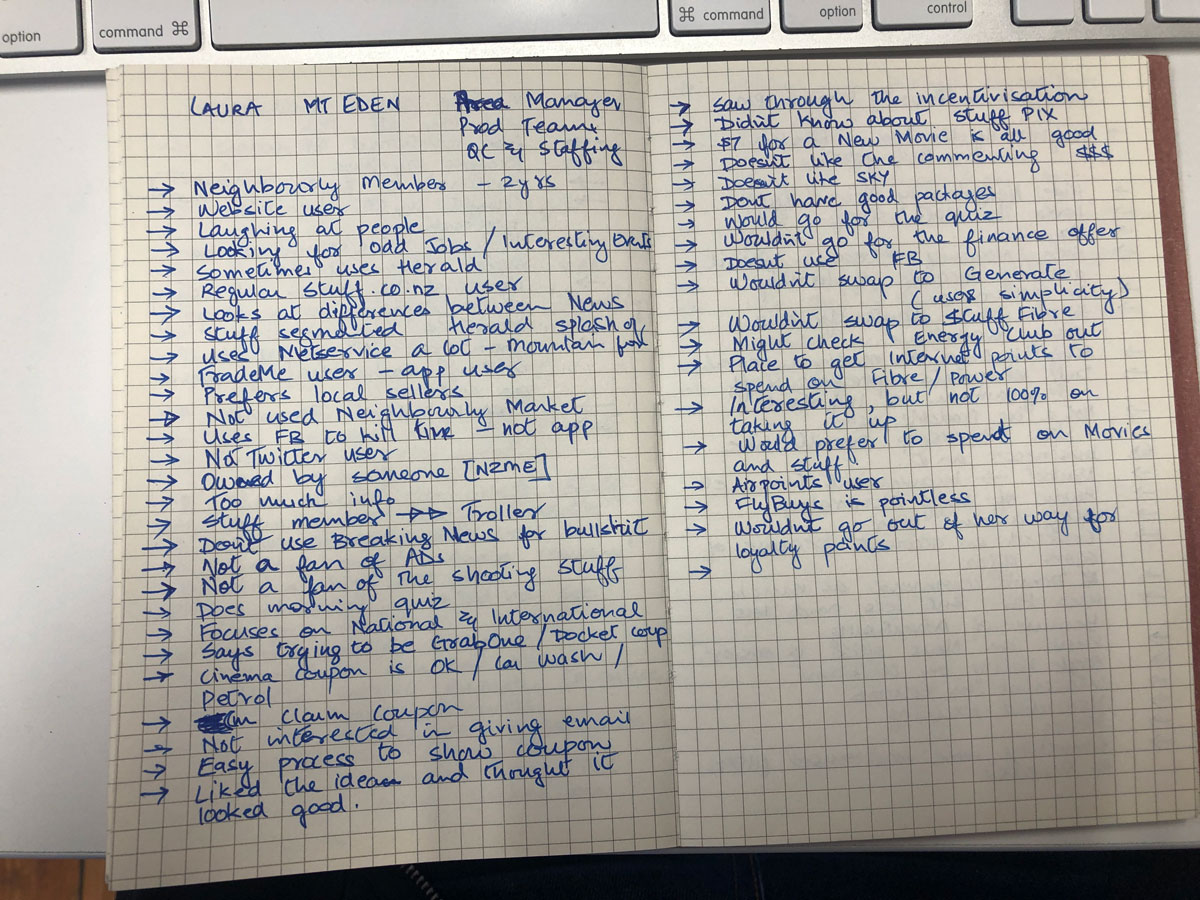 option
command ⌘
⌘ command
option
control
LAURA MT EDEN Manager
Prod Team
QC & Staffing
→ Neighbourly member - 2yrs
→ Website user
→ Laughing at people
→ Looking for odd Jobs / Interesting Events
→ Sometimes uses Herald
→ Regular stuff.co.nz user
→ Looks at differences between News
→ Stuff segmented Herald splash of
→ Uses Metservice a lot - mountain for
→ TradeMe user - app user
→ Prefers local sellers
→ Not used Neighbourly Market
→ Uses FB to kill time - not app
→ Not Twitter user
→ Owned by someone [NZME]
→ Too much info
→ Stuff member →→ Troller
→ Don't use Breaking News for bullshit
→ Not a fan of ADs
→ Not a fan of the shooting stuff
→ Does morning quiz
→ Focuses on National & International
→ Says trying to be GrabOne / Docket coup
→ Cinema coupon is OK / Car wash /
Petrol
→ claim coupon
→ Not interested in giving email
→ Easy process to show coupon
→ Liked the idea and thought it
looked good.
→ Saw through the incentivisation
→ Didn't know about stuff PIX
→ $7 for a New Movie is all good
→ Doesn't like the commenting $$$
→ Doesn't like SKY
→ Dont have good packages
→ Would go for the quiz
→ Wouldn't go for the finance offer
→ Doesnt use FB
→ Wouldn't swap to Generate
(uses simplicity)
→ Wouldnt swap to Stuff Fibre
→ Might check Energy Club out
→ Place to get Internet points to
spend on Fibre / Power
→ Interesting, but not 100% on
taking it up
→ Would prefer to spend on Movies
and stuff
→ Airpoints user
→ FlyBuys is pointless
→ Wouldnt go out of her way for
loyalty points
→